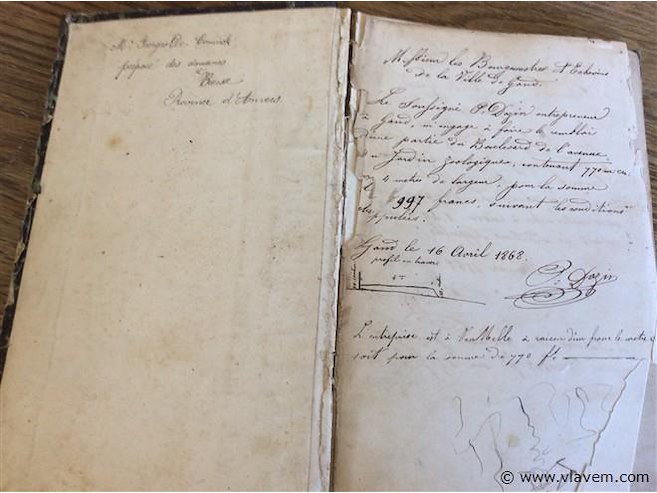 préposé des douanes
à
Province d'Anvers.
Messieurs les Bourgmestres et Echevins
de la Ville de Gand.
Le Soussigné P. Dozin entrepreneur
à Gand, m'engage à faire le remblai
d'une partie du Boulevard de l'avenue
Jardin Zoologique, contenant 770 m cu.
4 mètres de largeur, pour la somme
997 francs, suivant les conditions
Gand le 16 Avril 1868.
profil en travers
P. Dozin
L'entreprise est à à raison d'un franc le mètre c
soit pour la somme de 770 fs.
© www.vlavem.com